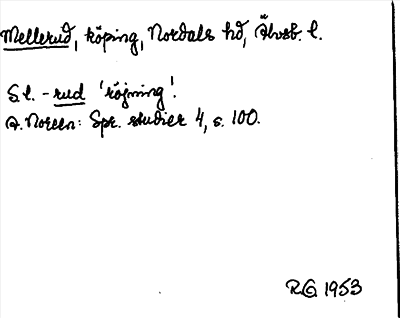 Mellerud, köping, Nordals hd, Älvsb. l.
S l. -rud 'röjning'.
A. Noreen: Spr. studier 4, s. 100.
RG 1953